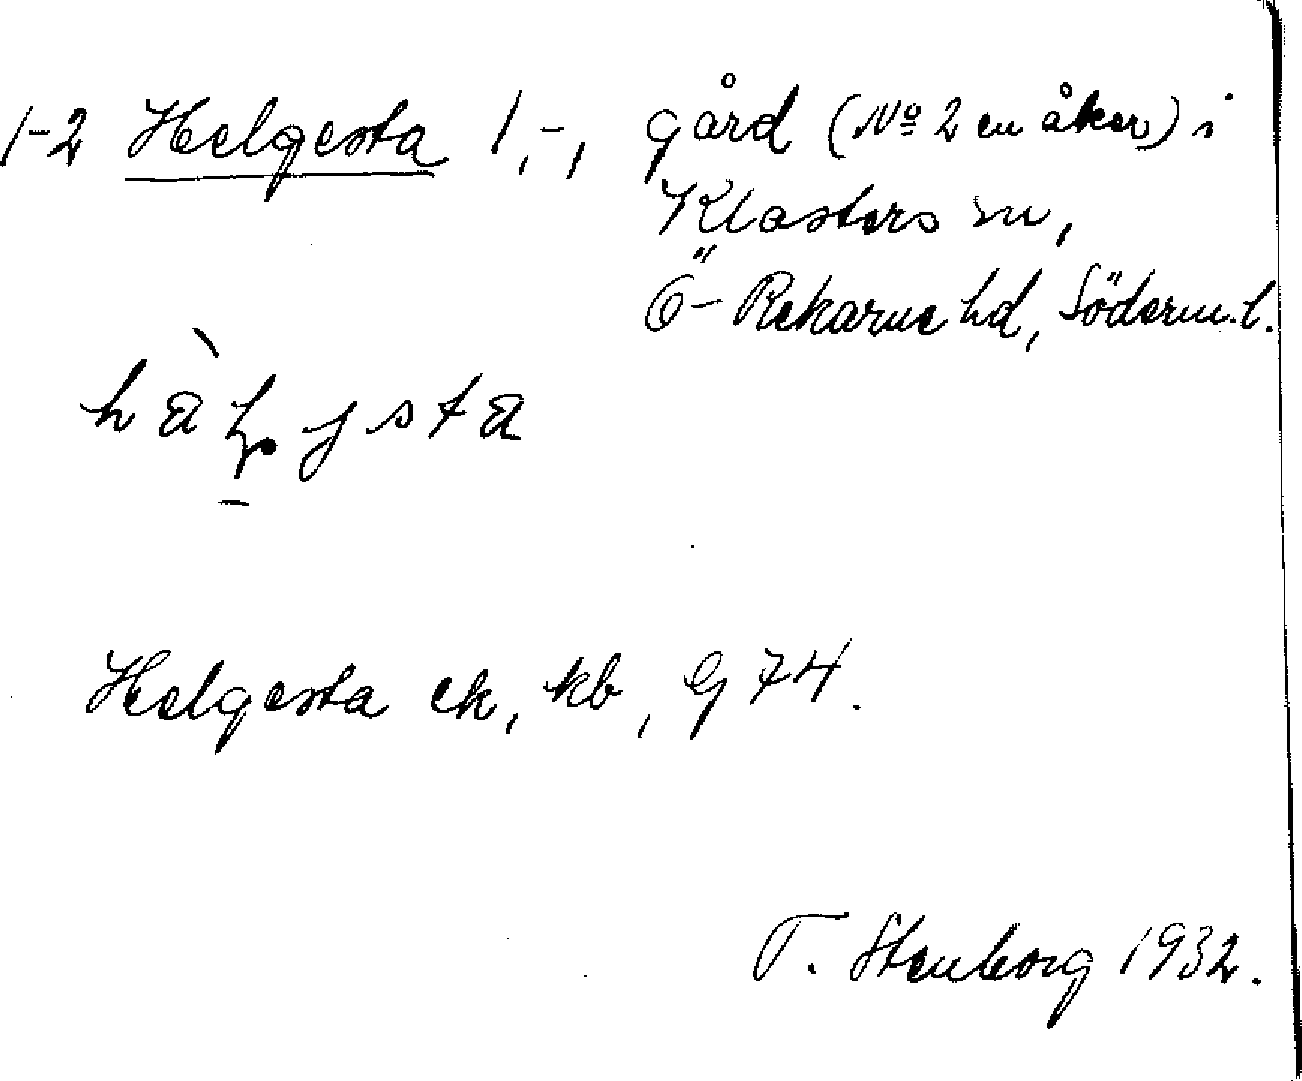 1-2 Helgesta 1,-, gård (No 2 en åker) i
Klosters sn,
Ö-Rekarne hd, Söderm. l.
Helgesta ek, kb, G 74.
T. Stenborg 1932.